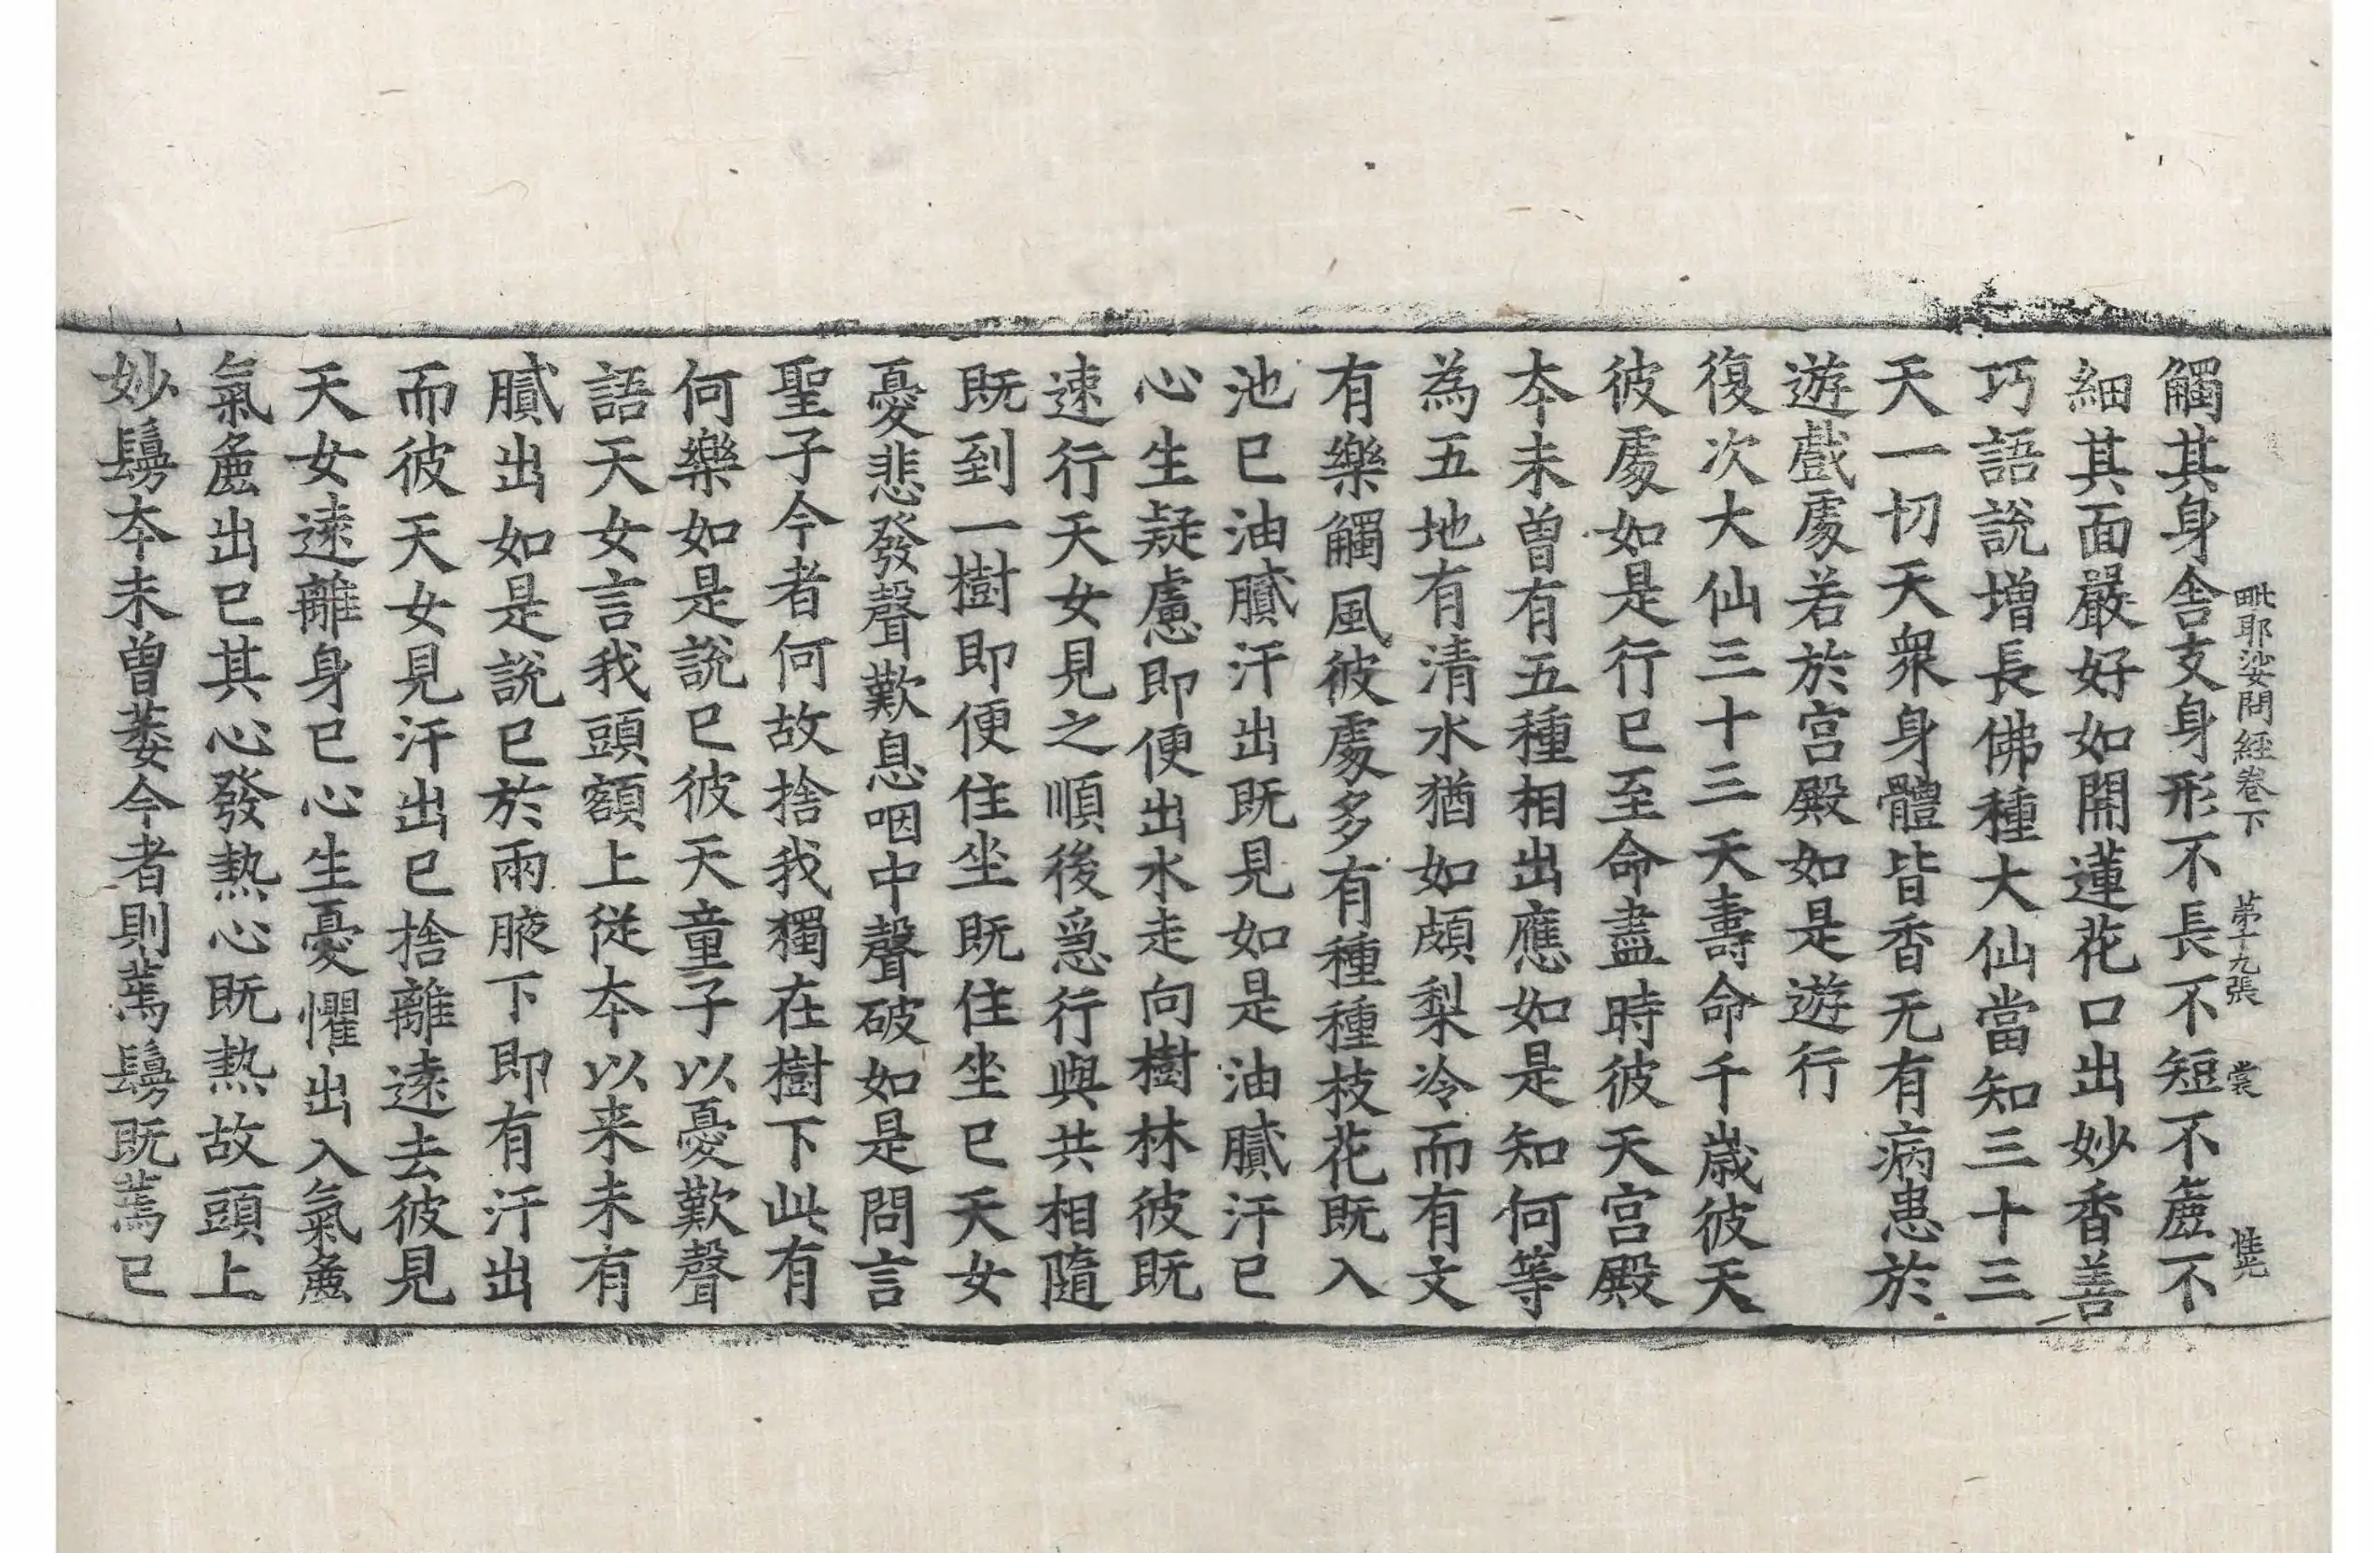 觸其身舎支身形不長不短不麁不
毗耶娑問經卷下 苐十九張 裳
細其面嚴好如開蓮花口出妙香善
巧語說増長佛種大仙當知三十三
天一切天衆身體皆香无有病患於
遊戲處若於宫殿如是遊行
復次大仙三十三天壽命千歲彼天
彼處如是行已至命盡時彼天宫殿
本未曽有五種相出應如是知何等
為五地有清水猶如頗梨冷而有文
有樂觸風彼處多有種種枝花既入
池已油膩汗出既見如是油膩汗已
心生疑慮即便出水走向樹林彼既
速行天女見之順後急行與共相隨
既到一樹即便住坐既住坐已天女
憂悲發聲歎息咽中聲破如是問言
聖子今者何故捨我獨在樹下此有
何樂如是說已彼天童子以憂歎聲
語天女言我頭額上従本以来未有
膩出如是說已於兩腋下即有汗出
而彼天女見汗出已捨離逺去彼見
天女逺離身已心生憂懼出入氣麁
氣麁出已其心發热心既热故頭上
妙鬘本未曽萎今者則蔫鬘既蔫已